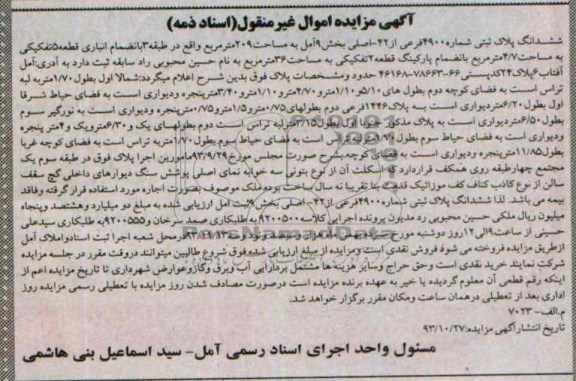 آگهی مزایده اموال غیرمنقول(اسناد ذمه)
ششدانگ پلاک ثبتی شماره۴۹۰۰فرعی از۴۲-اصلی بخش۹آمل به مساحت۲۰۹مترمربع واقع در طبقه۳بانضمام انباری قطعه۵تفکیکی
به مساحت۴/۷مترمربع بانضمام پارکینگ قطعه۲تفکیکی به مساحت۳۶مترمربع به نام حسین محبوبی راد سابقه ثبت دارد به آدری:آمل
آفتاب۶پلاک۲۴کدپستی۶۶-۷۸۶۶۳-۴۶۱۶۸ حدود ومشخصات پلاک فوق بدین شرح اعلام میگردد:شمالا اول بطول۱/۷۰متربه لبه
تراس است به فضای کوچه دوم بطول های ۵/۱۰و۱/۱۰مترو۴/۷۰مترو۱/۱۰مترو۳/۴۰مترپنجره ودیواری است به فضای حیاط شرقا
اول بطول۶/۲۰متردیواری است به پلاک۱۴۴۶فرعی دوم بطولهای۰/۷۵مترو۱/۵مترو۰/۷۵مترپنجره ودیواری است به نورگیر سوم
بطول۶/۵۰متردیواری است به پلاک مذکور جنوبا اول بطول۳/۱۵متربه تراس است دوم بطولهای یک و۶/۳۰مترویک و۴متر پنجره
ودیواری است به فضای حیاط سوم بطول۱/۷۰متربه تراس است به فضای حیاط سوم بطول۱/۷۰متربه تراس است به فضای کوچه غربا
بطول۱۱/۸۵مترپنجره ودیواری است به فضای کوچه بشرح صورت مجلس مورخ۹۳/۹/۲۹مامورین اجرا پلاک فوق در طبقه سوم یک
مجتمع چهارطبقه روی همکف قراردارد که اسکلت آن از نوع بتونی سه خوابه نمای اصلی پوشش سنگ دیوارهای داخلی گچ سقف
سالن از نوع کاذب کناف کف موزائیک قدمت بنا تقریبا نه سال ساخت بوده ملک موصوف بصورت اجاره مورد استفاده قرار گرفته وفاقد
بیمه می باشد. لذا ششدانگ پلاک ثبتی شماره ۴۹۰۰فرعی از۴۲-اصلی بخش ۹ثبت آمل ارزیابی شده به مبلغ دو میلیارد وهشتصد وپنجاه
میلیون ریال ملکی حسین محبوبی رد مدیون پرونده اجرایی کلاسه ۹۲۰۰۵۰۰به طلبکاری صمد سرخان و۹۲۰۰۵۵۵به طلبکاری سیدعلی
حسینی از ساعت۹الی۱۲روز دوشنبه مورخ
محل شعبه اجرا ثبت اسنادواملاک آمل
ازطریق مزایده فروخته می شود فروش نقدی است ومزایده از مبلغ ارزیابی شده فوق شروع طالبین میتوانند دروقت مقرر در جلسه مزایده
شرکت نمایند خرید نقدی است وحق حراج وسایر هزینه ها مشتمل بردارایی آب وبرق وگازوعوارض شهرداری تا تاریخ مزایده اعم از
اینکه رقم قطعی آن معلوم گردیده یا خیر به عهده برنده مزایده است درصورت مصادف شدن روز مزایده با تعطیلی رسمی مزایده روز
اداری بعد از تعطیلی درهمان ساعت ومکان مقرر برگزار خواهد شد.
م.الف-۷۰۲۳
تاریخ انتشارآگهی مزایده:۹۳/۱۰/۲۷
مسئول واحد اجرای اسناد رسمی آمل- سید اسماعیل بنی هاشمی